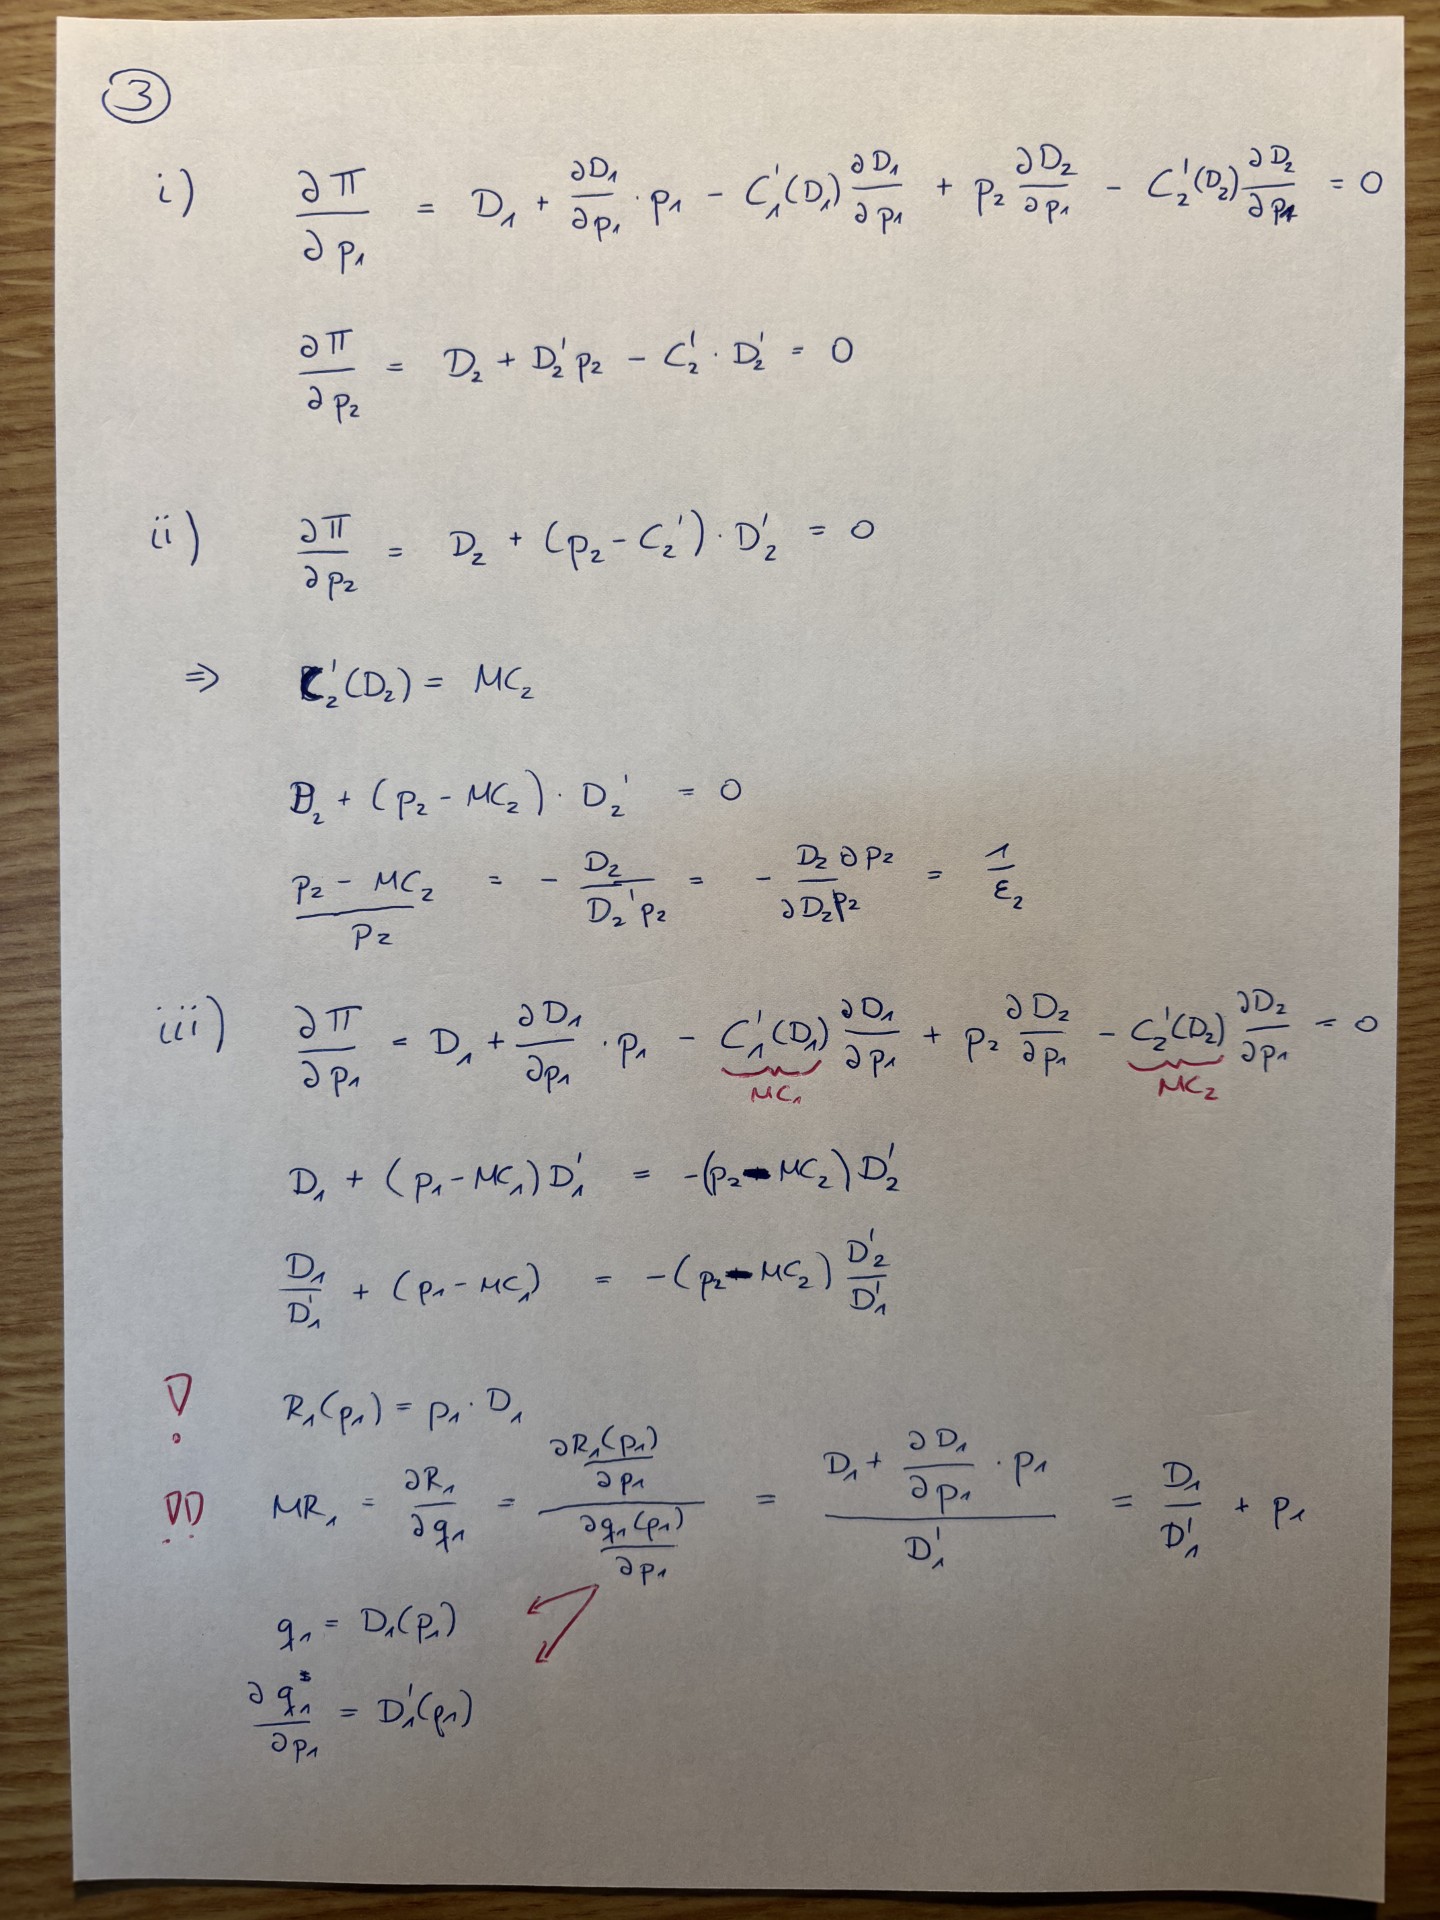 3
i) ∂π/∂p₁ = D₁ + ∂D₁/∂p₁ · p₁ − C₁'(D₁) ∂D₁/∂p₁ + p₂ ∂D₂/∂p₁ − C₂'(D₂) ∂D₂/∂p₁ = 0
∂π/∂p₂ = D₂ + D₂' p₂ − C₂' · D₂' = 0
ii) ∂π/∂p₂ = D₂ + (p₂ − C₂') · D₂' = 0
⇒ C₂'(D₂) = MC₂
D₂ + (p₂ − MC₂) · D₂' = 0
(p₂ − MC₂)/p₂ = − D₂/(D₂' p₂) = − (D₂ ∂p₂)/(∂D₂ p₂) = 1/ε₂
iii) ∂π/∂p₁ = D₁ + ∂D₁/∂p₁ · p₁ − C₁'(D₁) ∂D₁/∂p₁ + p₂ ∂D₂/∂p₁ − C₂'(D₂) ∂D₂/∂p₁ = 0
MC₁ MC₂
D₁ + (p₁ − MC₁) D₁' = −(p₂ − MC₂) D₂'
D₁/D₁' + (p₁ − MC₁) = −(p₂ − MC₂) D₂'/D₁'
! R₁(p₁) = p₁ · D₁
!! MR₁ = ∂R₁/∂q₁ = (∂R₁(p₁)/∂p₁)/(∂q₁(p₁)/∂p₁) = (D₁ + ∂D₁/∂p₁ · p₁)/D₁' = D₁/D₁' + p₁
q₁ = D₁(p₁)
∂q₁/∂p₁ = D₁'(p₁)